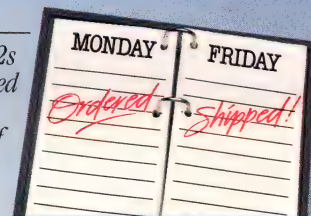 2s
ed
f
MONDAY
Ordered
FRIDAY
Shipped!